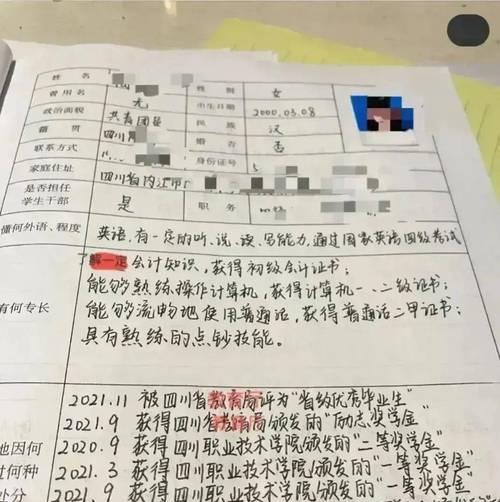 姓 名 性 别 女
曾用名 无 出生日期 2000.03.08
政治面貌 共青团员 民 族 汉
籍 贯 四川 婚 否 否
联系方式 身份证号 5
家庭住址 四川省内江市
是否担任
学生干部 是 职 务
懂何外语、程度 英语,有一定的听、说、读、写能力,通过国家英语四级考试
了解一定会计知识,获得初级会计证书;
能够熟练操作计算机,获得计算机一、二级证书;
有何专长 能够流畅地使用普通话,获得普通话二甲证书;
具有熟练的点钞技能。
2021.11 被四川省教育局评为“省级优秀毕业生”
2021.9 获得四川省教育局颁发的“励志奖学金”
他因何 2020.9 获得四川职业技术学院颁发的“二等奖学金”
过何种 2021.3 获得四川职业技术学院颁发的“一等奖学金”
处分 2021.9 获得四川职业技术学院颁发的“一等奖学金”